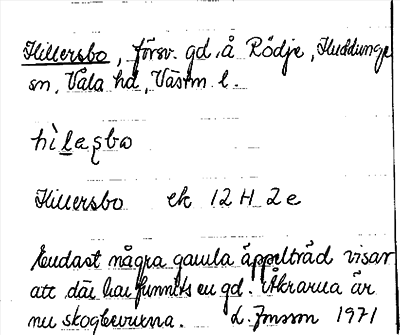 Hillersbo, försv. gd å Rödje, Huddunge
sn, Våla hd, Västm l.
hìlaʂbo
Hillersbo ek 12 H 2e
Endast några gamla äppelträd visar
att där har funnits en gd. Åkrarna är
nu skogbevuxna. L. Jnsson 1971